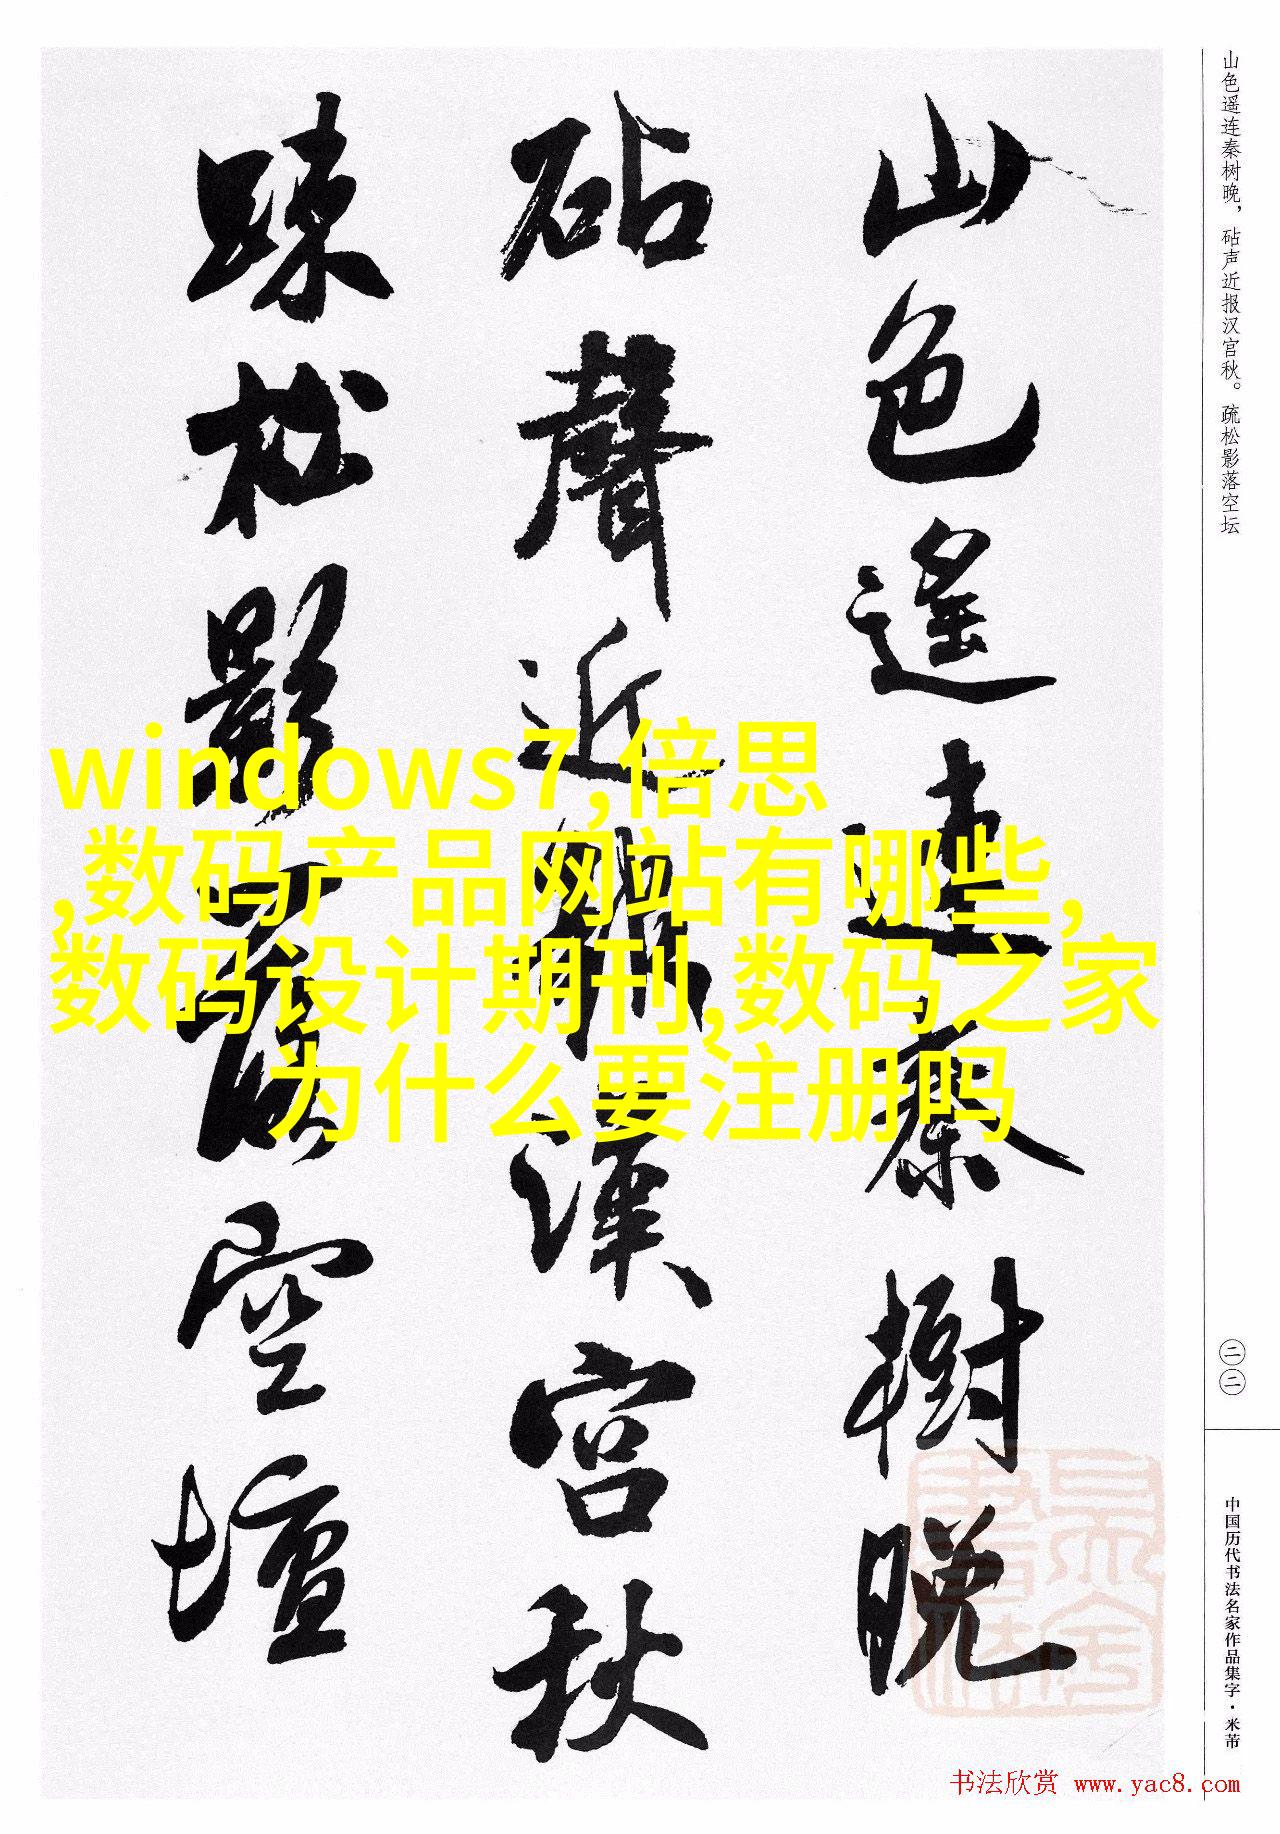 山色遥连秦树晚，砧声近报汉宫秋。疏松影落空坛
山色遙連秦樹晚
砧聲近報漢宮秋
踈松影落空壇
windows7,倍思
,数码产品网站有哪些,
数码设计期刊,数码之家
为什么要注册吗
二二
中国历代书法名家作品集字·米芾
书法欣赏 www.yac8.com